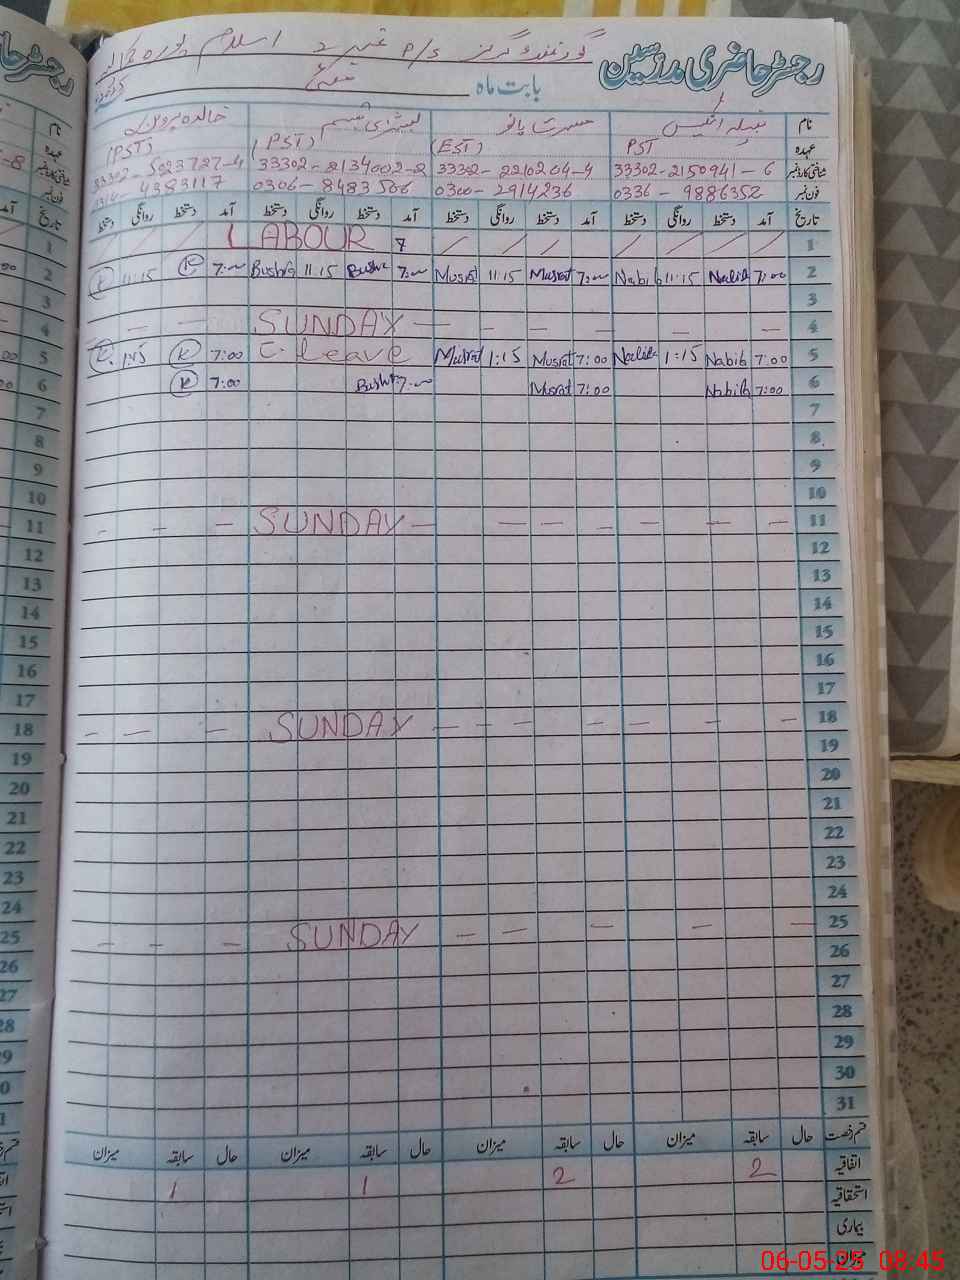 رجسٹر حاضری مدرسین
گورنمنٹ گرلز P/S نمبر 2 اسلام پورہ
بابت ماہ مئی
نام نبیلہ انیس مسرت بانو بشریٰ خالدہ پروین
عہدہ PST (EST) (PST) (PST)
شناختی کارڈ نمبر 33302-2150941-6 3332-2210204-4 33302-2134002-2 33302-5023727-4
فون نمبر 0336-9886352 0300-2914236 0306-8483506 4383117
تاریخ آمد دستخط روانگی دستخط آمد دستخط روانگی دستخط آمد دستخط روانگی دستخط آمد دستخط روانگی دستخط
1 LABOUR
2 7:00 Nabila 11:15 Nabila 7:00 Musrat 11:15 Musrat 7:00 Bushra 11:15 Bushra 7:00 K 11:15 K
3
4 SUNDAY
5 7:00 Nabila 1:15 Nabila 7:00 Musrat 1:15 Musrat C. leave 7:00 K 1:15 K
6 7:00 Nabila 7:00 Musrat 7:00 Bushra 7:00 K
7
8
9
10
11 SUNDAY
12
13
14
15
16
17
18 SUNDAY
19
20
21
22
23
24
25 SUNDAY
26
27
28
29
30
31
قسم رخصت حال سابقہ میزان حال سابقہ میزان حال سابقہ میزان حال سابقہ میزان
اتفاقیہ 2 2 1 1
استحقاقیہ
بیماری
میزان
06-05-25 08:45